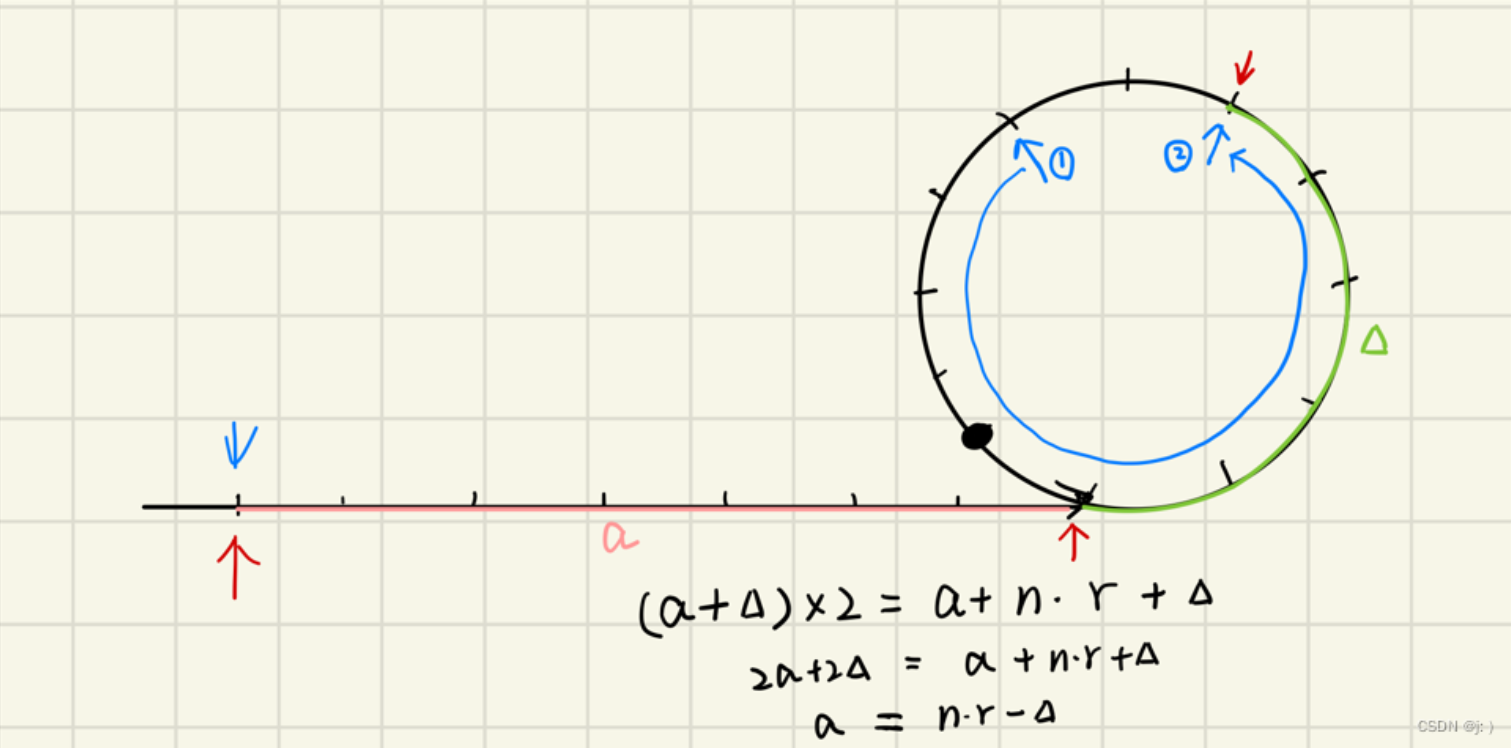 ① ②
Δ
a
(a+Δ)×2 = a+n·r+Δ
2a+2Δ = a+n·r+Δ
a = n·r-Δ
CSDN @j: )